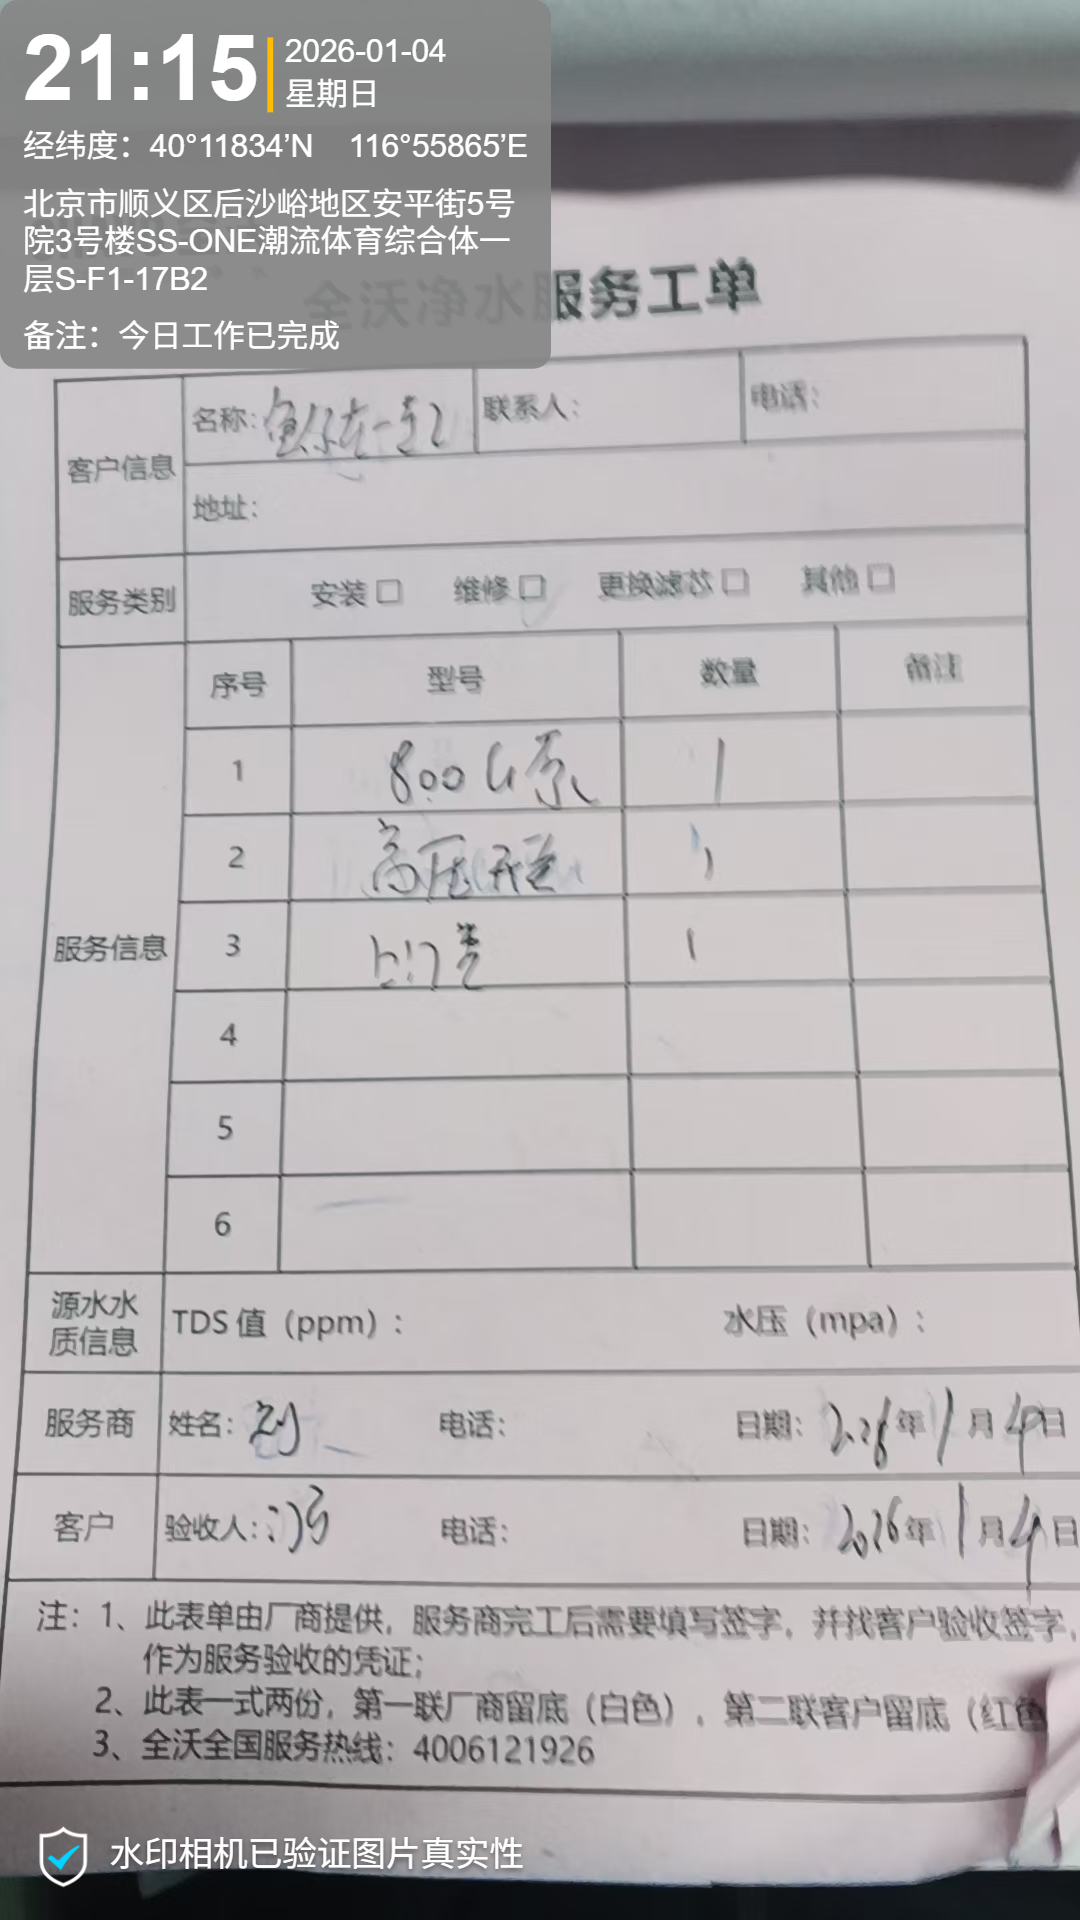 21:15
2026-01-04
星期日
经纬度：40°11834’N 116°55865’E
北京市顺义区后沙峪地区安平街5号
院3号楼SS-ONE潮流体育综合体一
层S-F1-17B2
备注：今日工作已完成
全沃净水服务工单
客户信息
名称：鱼你在一起
联系人：
电话：
地址：
服务类别
安装□ 维修□ 更换滤芯□ 其他□
服务信息
序号 型号 数量 备注
1 800G泵 1
2 高压开关 1
3 上门费 1
4
5
6
源水水
质信息
TDS 值（ppm）：
水压（mpa）：
服务商 姓名： 电话： 日期：2026年1月4日
客户 验收人：冯 电话： 日期：2026年1月4日
注：1、此表单由厂商提供，服务商完工后需要填写签字，并找客户验收签字，
作为服务验收的凭证；
2、此表一式两份，第一联厂商留底（白色），第二联客户留底（红色
3、全沃全国服务热线：4006121926
水印相机已验证图片真实性